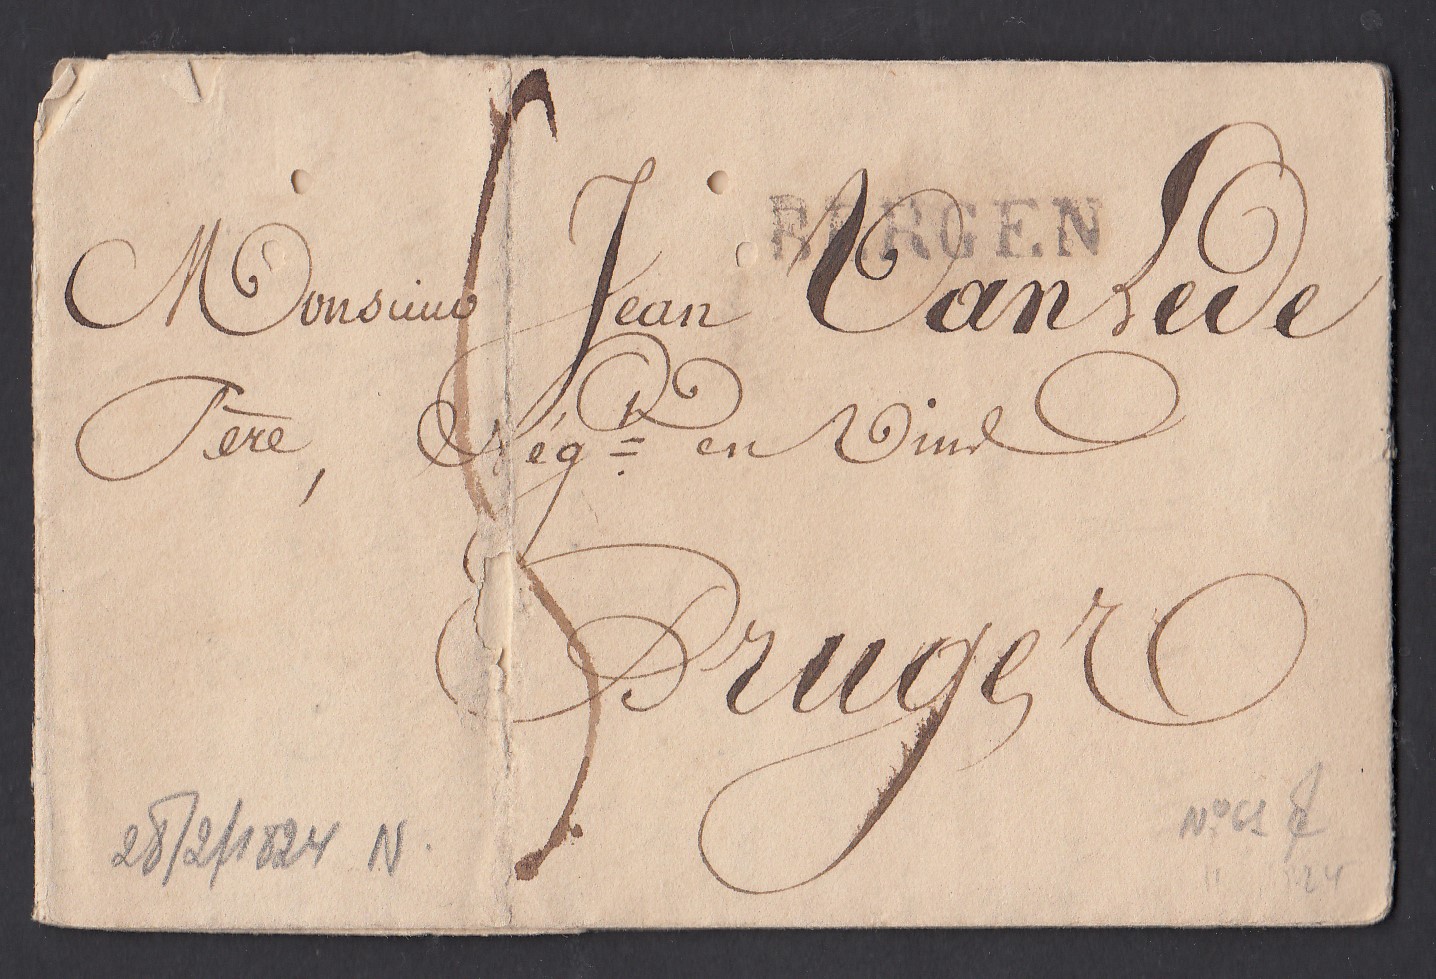 BERGEN
Monsieur Jean Van Lede
Père, Négt. en Vins
Bruges
28/2/1824 N.